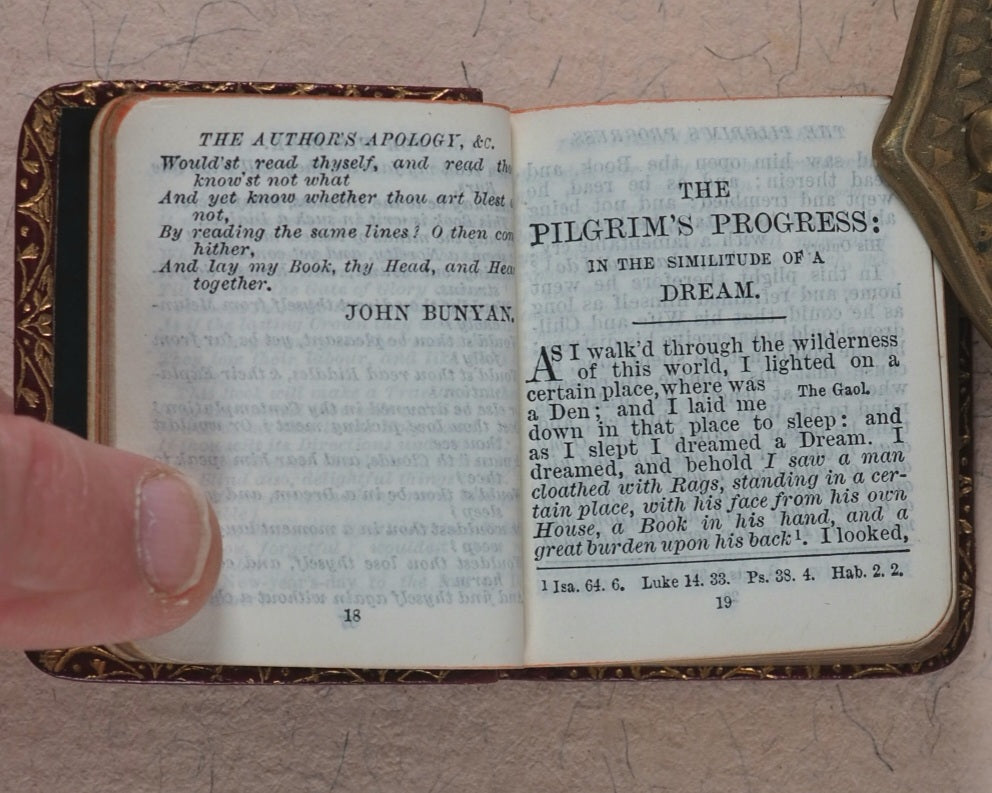 THE AUTHOR'S APOLOGY, &c.
Would'st read thyself, and read
know'st not what
And yet know whether thou art blest
not,
By reading the same lines? O then
hither,
And lay my Book, thy Head, and
together.
JOHN BUNYAN.
18
THE
PILGRIM'S PROGRESS:
IN THE SIMILITUDE OF A
DREAM.
AS I walk'd through the wilderness
of this world, I lighted on a
certain place, where was
The Gaol.
a Den; and I laid me
down in that place to sleep: and
as I slept I dreamed a Dream. I
dreamed, and behold I saw a man
cloathed with Rags, standing in a cer-
tain place, with his face from his own
House, a Book in his hand, and a
great burden upon his back¹. I looked,
1 Isa. 64. 6. Luke 14. 33. Ps. 38. 4. Hab. 2. 2.
19